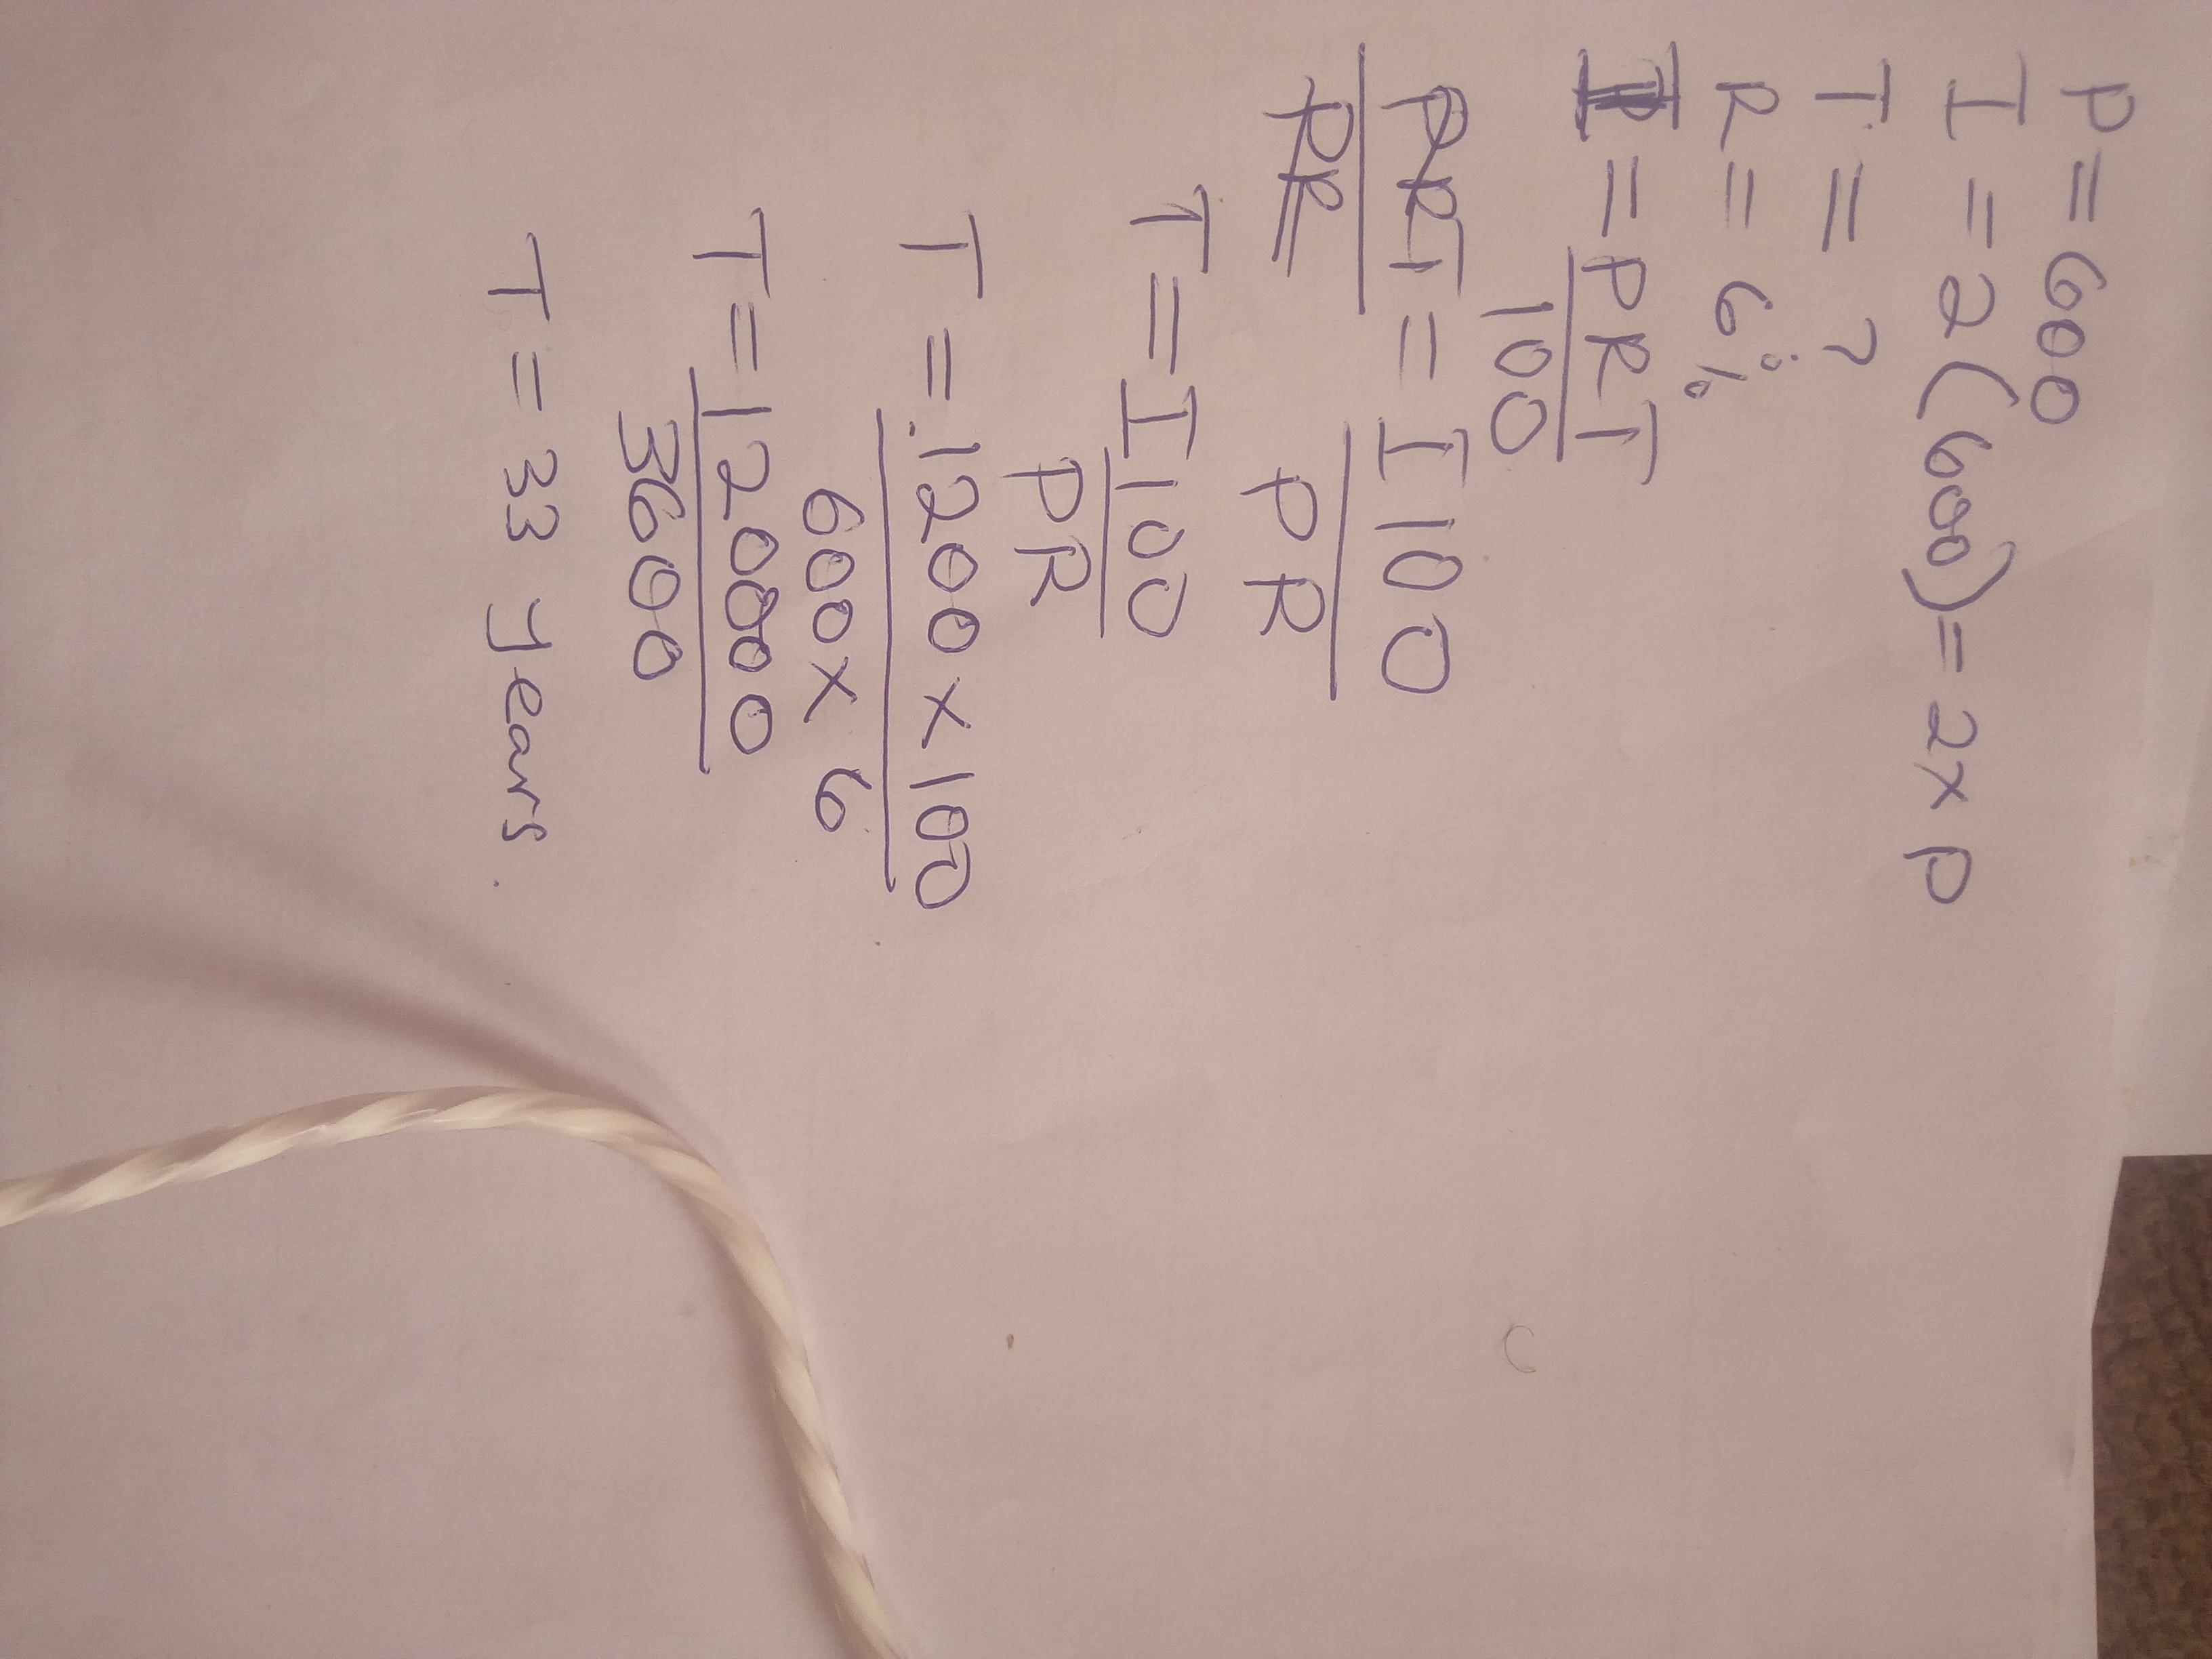 P = 600
I = 2(600) = 2 x P
T = ?
R = 6%
I = PRT
100
PRT = I100
PR PR
T = I100
PR
T = 1200 x 100
600 x 6
T = 120000
3600
T = 33 years.